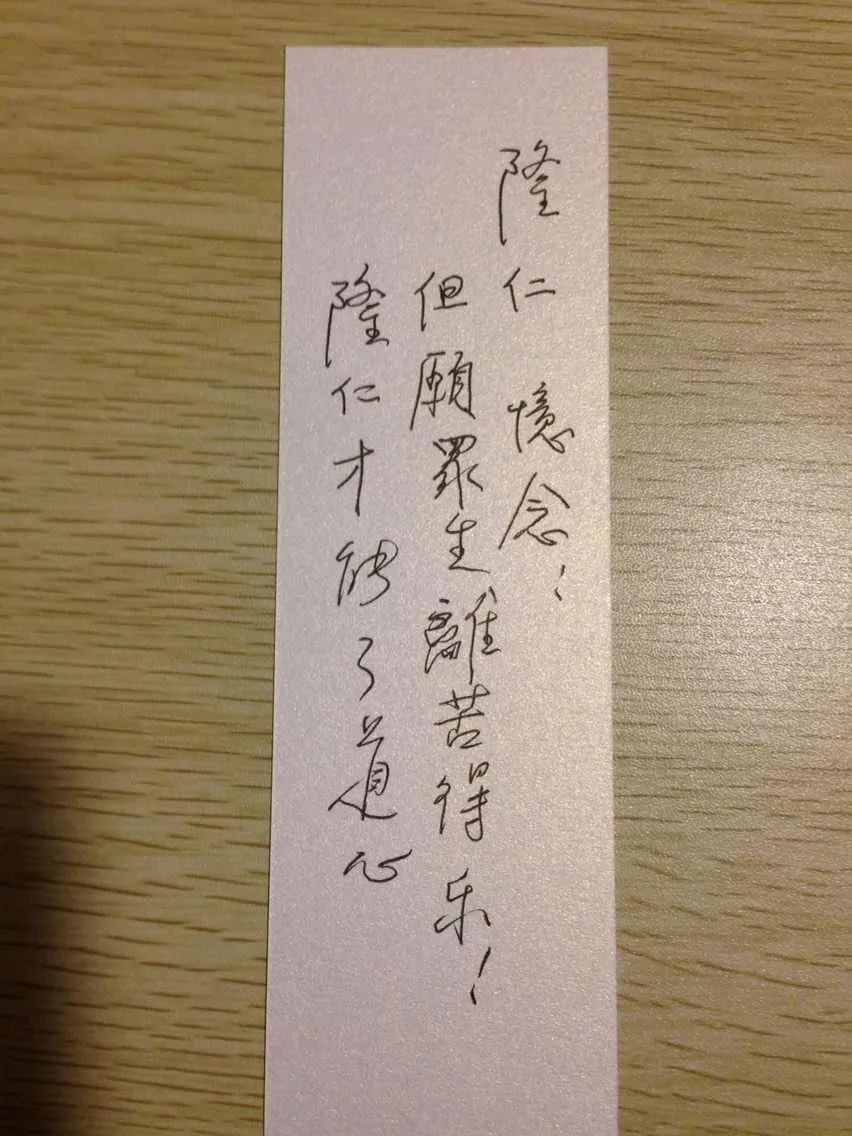 隆仁 憶念！
但願眾生離苦得乐！
隆仁才能了道心